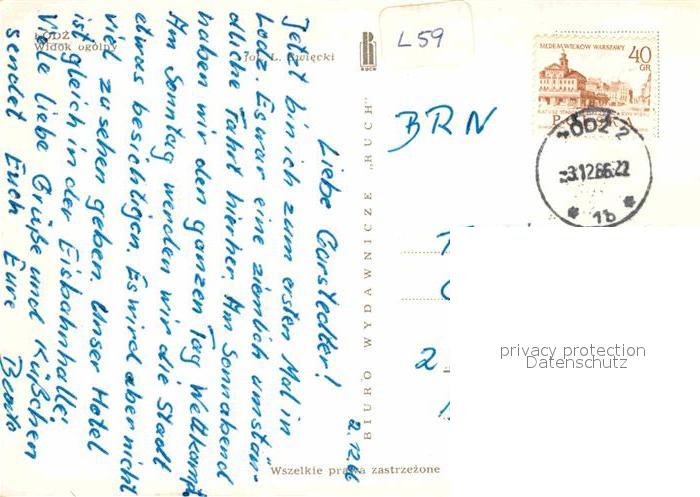 ŁÓDŹ
Widok ogólny
fot. L. Święcki
RUCH
L59
SIEDEM WIEKÓW WARSZAWY
40
GR
ŁÓDŹ 2
-3.12.66.22
* 1b *
BRN
BIURO WYDAWNICZE „RUCH"
Wszelkie prawa zastrzeżone
2.12.66
Liebe Garstedter!
Jetzt bin ich zum ersten Mal in
Lodz. Es war eine ziemlich umstän-
dliche Fahrt hierher. Am Sonnabend
haben wir den ganzen Tag Wettkampf.
Am Sonntag werden wir die Stadt
etwas besichtigen. Es wird aber nicht
viel zu sehen geben. Unser Hotel
ist gleich in der Eisbahnhalle.
Viele liebe Grüße und Küßchen
sendet Euch Eure
2
privacy protection
Datenschutz